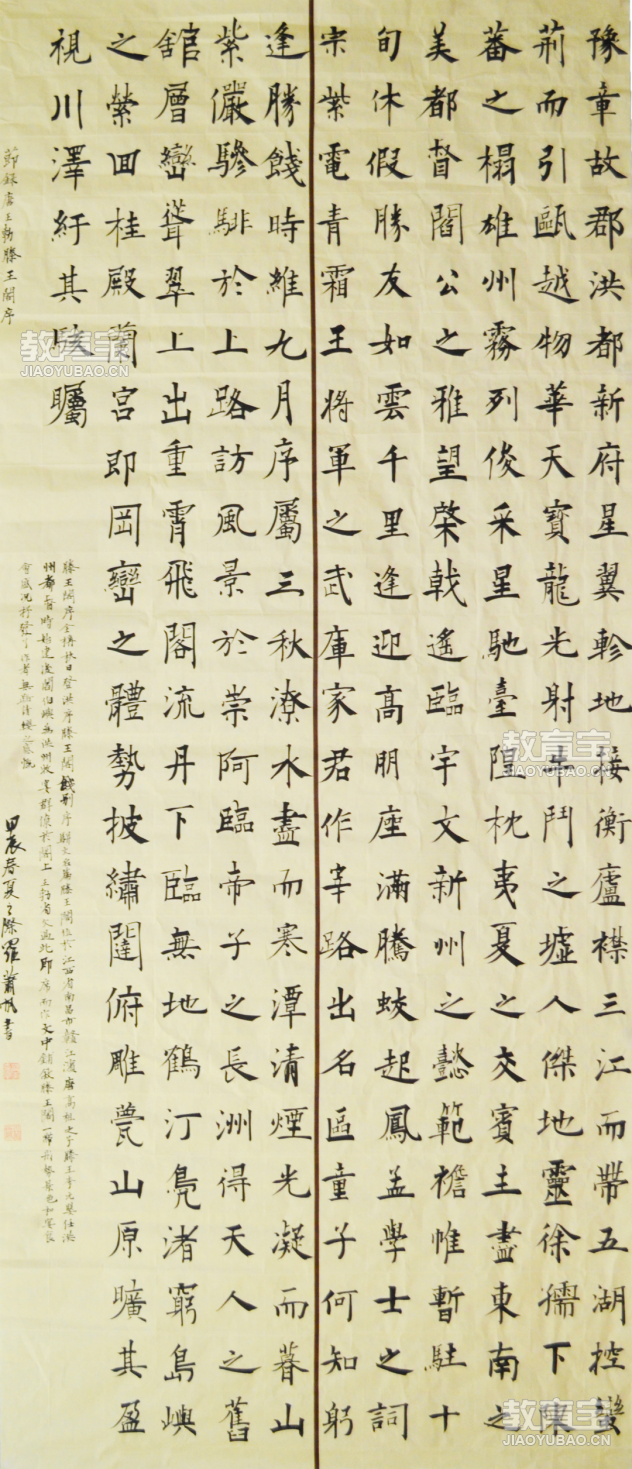 豫章故郡洪都新府星翼軫地接衡廬襟三江而帶五湖控蠻
荊而引甌越物華天寶龍光射牛鬥之墟人傑地靈徐孺下陳
蕃之榻雄州霧列俊采星馳臺隍枕夷夏之交賓主盡東南之
美都督閻公之雅望棨戟遙臨宇文新州之懿範襜帷暫駐十
旬休假勝友如雲千里逢迎高朋座滿騰蛟起鳳孟學士之詞
宗紫電青霜王將軍之武庫家君作宰路出名區童子何知躬
逢勝餞時維九月序屬三秋潦水盡而寒潭清煙光凝而暮山
紫儼驂騑於上路訪風景於崇阿臨帝子之長洲得天人之舊
舘層巒聳翠上出重霄飛閣流丹下臨無地鶴汀鳧渚窮島嶼
之縈回桂殿蘭宮即岡巒之體勢披繡闥俯雕甍山原曠其盈
視川澤紆其駭矚
節錄唐王勃滕王閣序
滕王閣序全稱秋日登洪府滕王閣餞別序
甲辰春夏之際羅蕭帆書
教育宝
JIAOYUBAO.CN
教育宝
JIAOYUBAO.CN
教育宝
JIAOYUBAO.CN